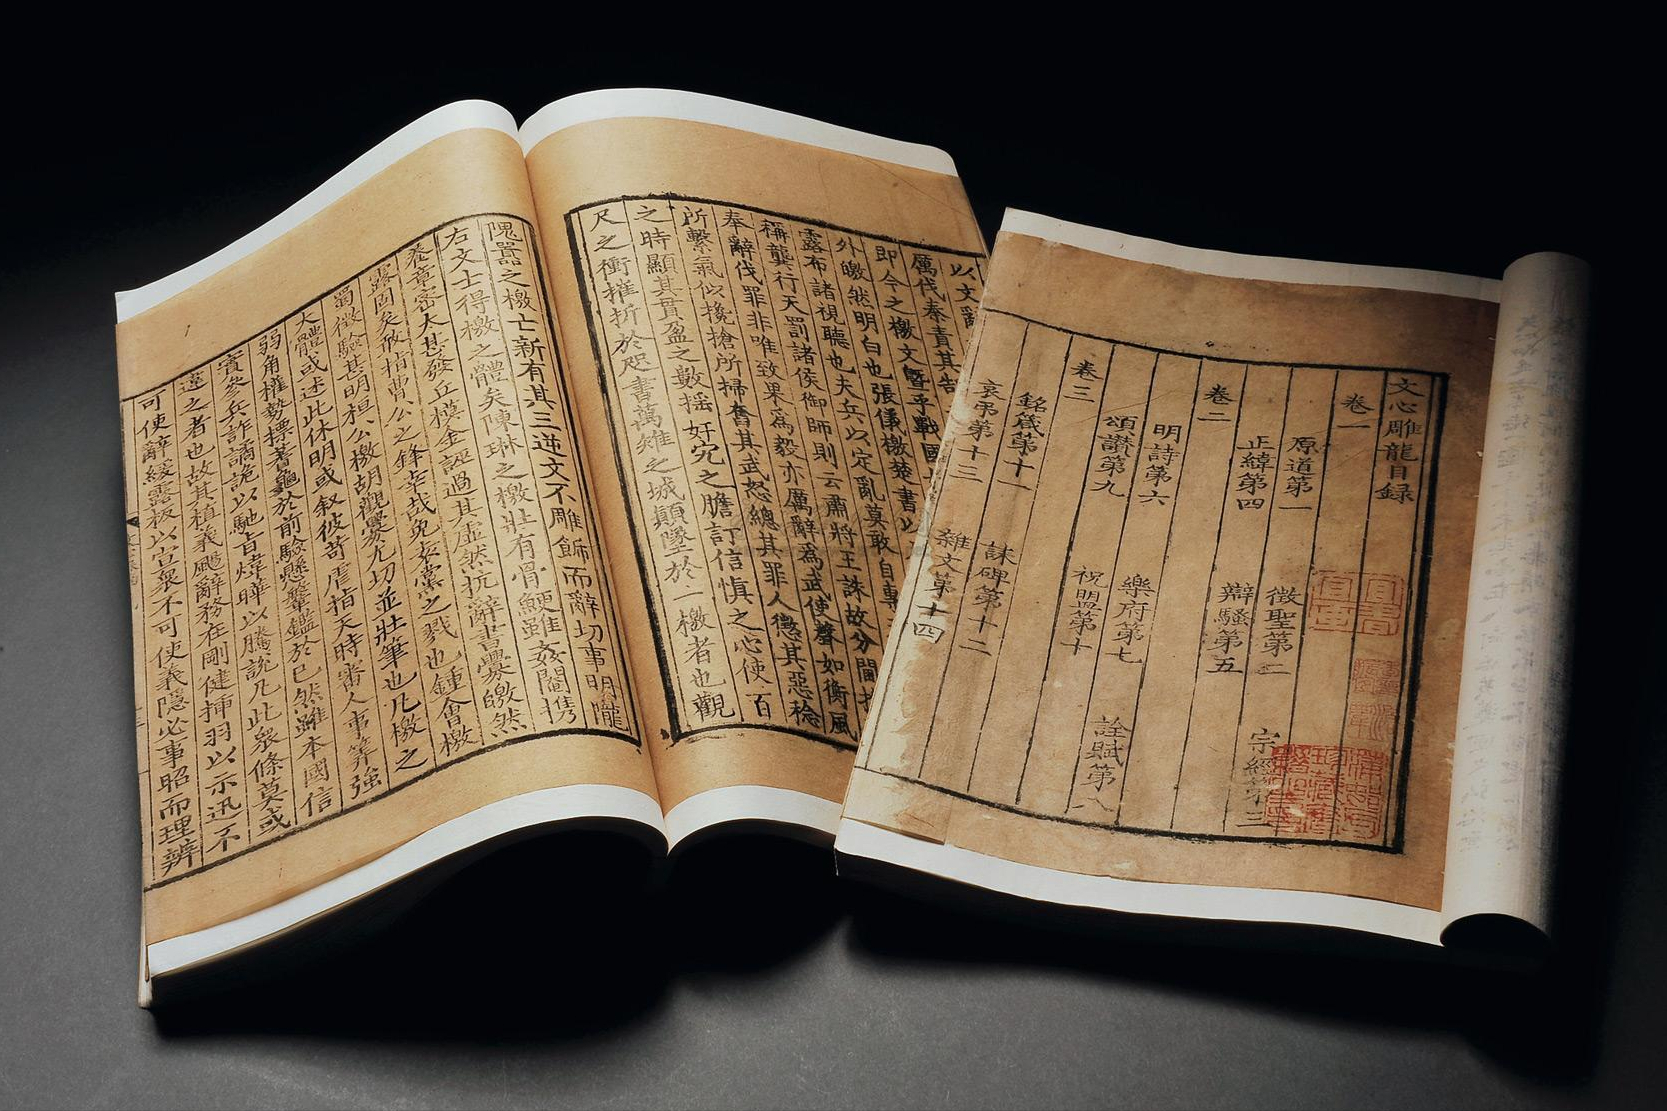 文心雕龍目録
卷一
原道第一 徵聖第二 宗經第三
正緯第四 辯騷第五
卷二
明詩第六 樂府第七 詮賦第八
頌讚第九 祝盟第十
卷三
銘箴第十一 誄碑第十二
哀弔第十三 雜文第十四
以文辭
厲代奉責其告
即今之檄文曁乎戰國
外皦然明白也張儀檄楚書以
露布諸視聽也夫兵以定亂莫敢自專
稱龔行天罰諸侯御師則云肅將王誅故分閫推
奉辭伐罪非唯致果為毅亦厲辭為武使聲如衡風
所繫氣似欃槍所掃奮其武怒總其罪人懲其惡稔
之時顯其貫盈之數搖奸宄之膽訂信慎之心使百
尺之衝摧折於咫書萬雉之城顛墜於一檄者也觀
隗囂之檄亡新有其三逆文不雕飾而辭切事明隴
右文士得檄之體矣陳琳之檄壯有骨鯁雖姦閹携
養章密太甚發丘模金誣過其虐然抗辭書釁皦然
露固矣敢指曹公之鋒幸哉免袁黨之戮也鍾會檄
蜀徵驗甚明桓公檄胡觀釁尤切並壯筆也凡檄之
大體或述此休明或叙彼苛虐指天時審人事筭強
弱角權勢標蓍龜於前驗懸鞶鑑於已然雖本國信
實參兵詐譎詭以馳旨煒曄以騰說凡此衆條莫或
違之者也故其植義颺辭務在剛健挿羽以示迅不
可使辭緩露板以宣衆不可使義隱必事昭而理辨